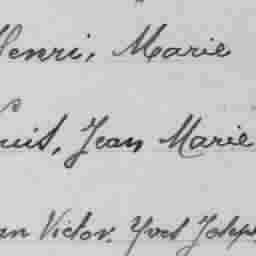 Henri, Marie
Louis, Jean Marie
Jean Victor, Yves Joseph